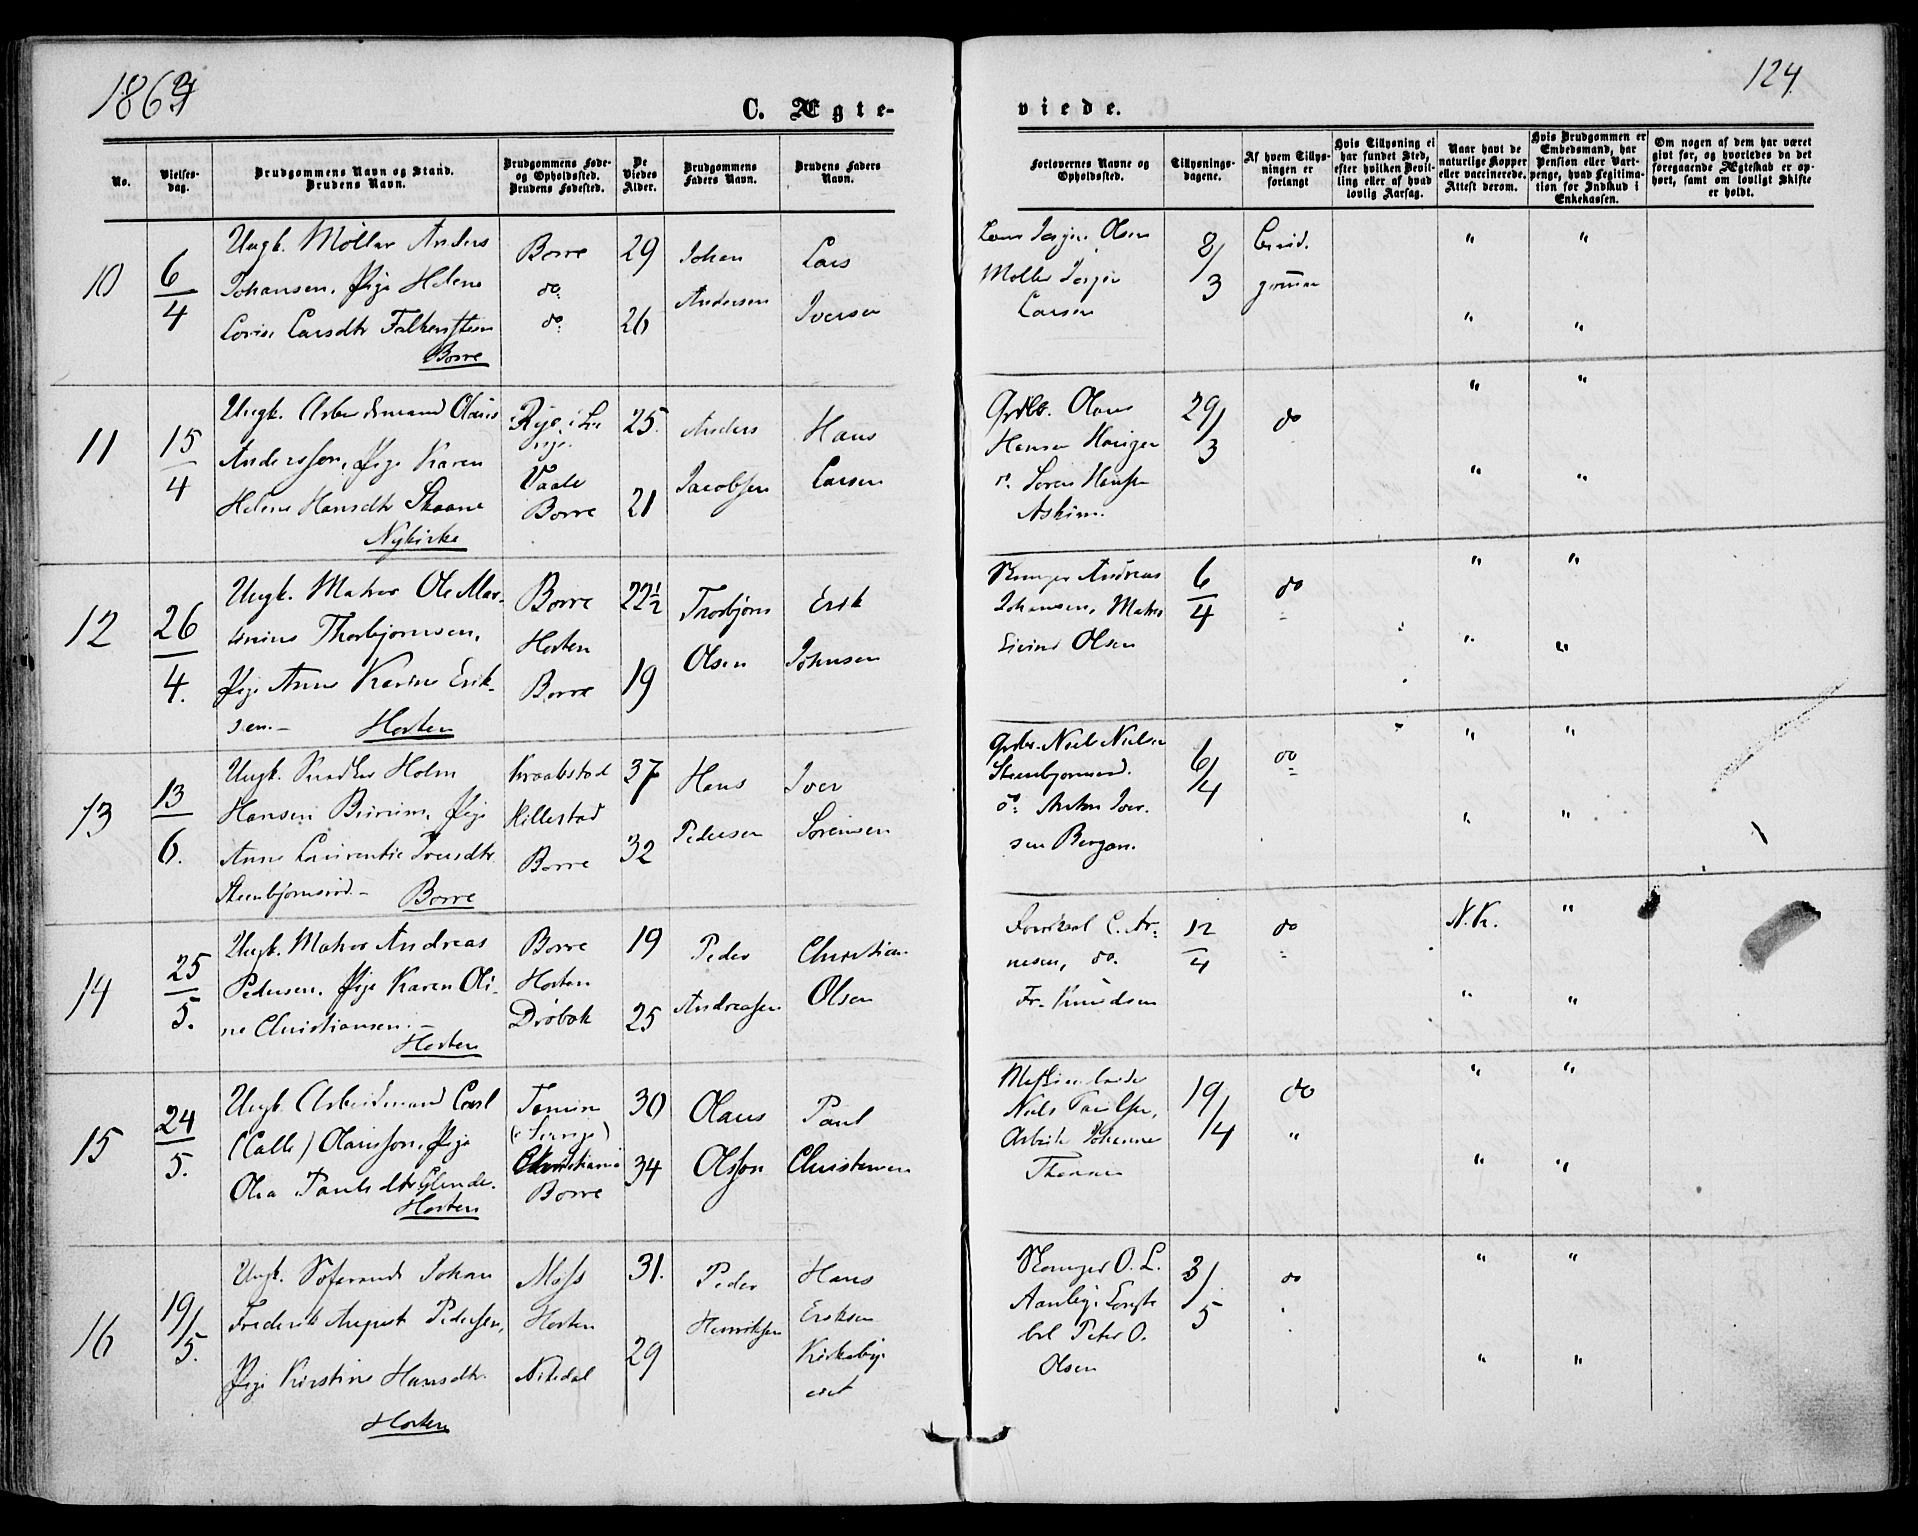 1864
124.
C. Ægte-
viede.
No.
Vielses-
dag.
Brudgommens Navn og Stand.
Brudens Navn.
Brudgommens Føde-
og Opholdssted.
Brudens Fødested.
De
Viedes
Alder.
Brudgommens
Faders Navn.
Brudens Faders
Navn.
Forlovernes Navne og
Opholdssted.
Tillysnings-
dagene.
Af hvem Tillys-
ningen er
forlangt
Hvis Tillysning ei
har fundet Sted,
efter hvilken Bevil-
ling eller af hvad
lovlig Aarsag.
Naar havt de
naturlige Kopper
eller vaccinerede.
Attest derom.
Hvis Brudgommen er
Embedsmand, har
Pension eller Vart-
penge, hvad Legitima-
tion for Indskud i
Enkekassen.
Om nogen af dem har været
givt før, og hvorledes da det
foregaaende Ægteskab er op-
hørt, samt om lovligt Skifte
er holdt.
10
6/4
Ungk. Møller Anders
Johansen, Pige Helene
Lovise Larsdtr Falkensteen
Borre
Borre
do:
do:
29
26
Johan
Andersen
Lars
Iversen
Jørgen Olsen
Møller Jørgen
Larsen
8/3
Brud-
gommen
" "
" "
11
15/4
Ungk. Arbeidsmand Olaus
Andersson, Pige Karen
Helene Hansdtr Skaane
Nykirke
Rye i
Vaale
Borre
25.
21
Anders
Jacobsen
Hans
Larsen
Grdbr. Olaus
Hansen
Søren Hansen
Askim.
29/3
do
" "
" "
12
26/4.
Ungk. Matros Ole Mar-
tinius Thorbjørnsen,
Pige Anne Karine Erik-
sen.-
Horten
Borre
Horten
Borre
22½
19
Thorbjørn
Olsen
Erik
Johnsen
Andreas
Johansen, Matros
Eivind Olsen
6/4
do
" "
" "
13
13/6.
Ungk. Snedker Holm
Hansen Pige
Anne Laurentie Iversdtr
Steenbjørnsrød - Borre
Kraakstad
Hillestad
Borre
37
32
Hans
Pedersen
Iver
Sørensen
Grdbr. Niels Nielsen
Steenbjørnsrød.
do: Anton Iver-
sen Bergan.
6/4
do
" "
" "
14
25/5.
Ungk. Matros Andreas
Pedersen, Pige Karen Oli-
ne Christiansen. -
Horten
Borre
Horten
Drøbak
19
25
Peder
Andreassen
Christian
Olsen
C. Ar-
nesen, do.
Fr. Knudsen
12/4
do
N.K. "
" "
15
24/5.
Ungk. Arbeidsmand Carl
(Calle) Olausson, Pige
Olea Paulsdtr Glende.
Horten
(i Sverige)
Christiania
Borre
30
34
Olaus
Olsson
Paul
Christensen
Niels Paulsen,
Arbeider Johannes
19/4
do
"
" "
" "
16
19/5.
Ungk. Søfarende Johan
Frederik August Pedersen,
Pige Kirstine Hansdtr.
Horten
Moss
Horten
Nitedal
31.
29
Peder
Henriksen
Hans
Eriksen
Kirkeby-
eiet
O. L.
Aanby,
Peter O.
Olsen
3/5
do
" "
" "